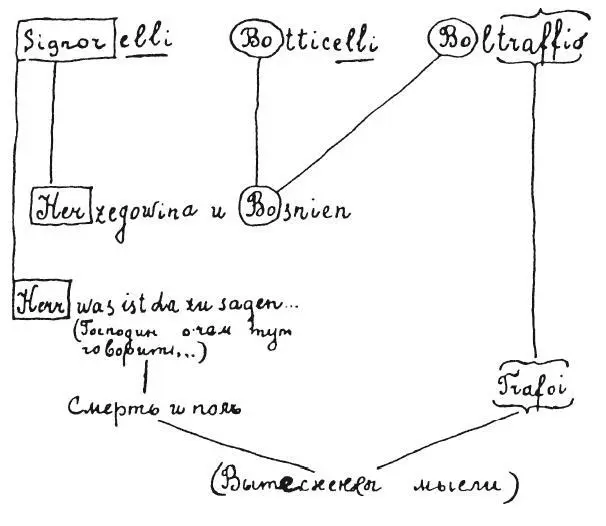 Signorelli Botticelli Boltraffio
Herzegowina и Bosnien
Herr was ist da zu sagen...
(Господин о чем тут
говорить...)
Смерть и пол
Trafoi
(Вытесненные мысли)